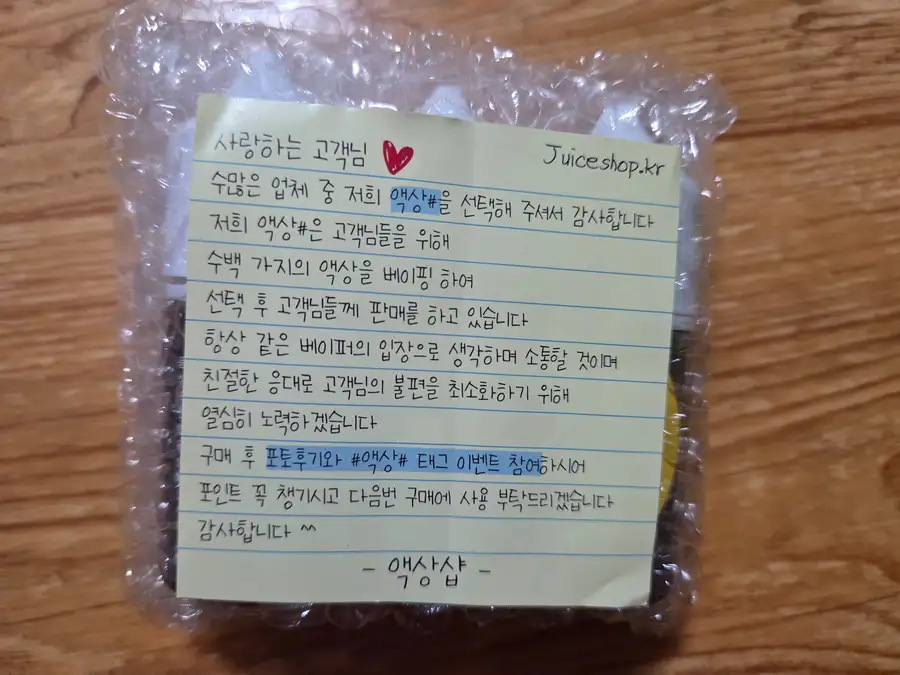 사랑하는 고객님
Juiceshop.kr
수많은 업체 중 저희 액상#을 선택해 주셔서 감사합니다
저희 액상#은 고객님들을 위해
수백 가지의 액상을 베이핑 하여
선택 후 고객님들께 판매를 하고 있습니다
항상 같은 베이퍼의 입장으로 생각하며 소통할 것이며
친절한 응대로 고객님의 불편을 최소화하기 위해
열심히 노력하겠습니다
구매 후 포토후기와 #액상# 태그 이벤트 참여하시어
포인트 꼭 챙기시고 다음번 구매에 사용 부탁드리겠습니다
감사합니다 ^^
- 액상샵 -